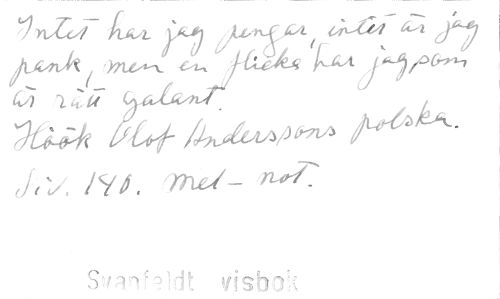 Intet har jag pengar, intet är jag
pank, men en flicka har jag, som
är rätt galant.
Höök Olof Anderssons polska.
Siv. 140. mel-not.
Svanfeldt visbok